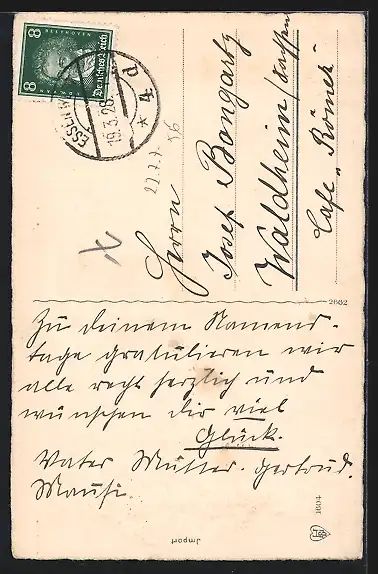 8 BEETHOVEN 8
Deutsches Reich
ESSEN
19.3.28
* 4 d
Herrn
Josef Bongartz
Waldheim/Sachsen
Cafe „Römer"
2662
Zu deinem Namens-
tage gratulieren wir
alle recht herzlich und
wünschen dir viel
Glück.
Vater Mutter. Gertrud.
Mausi.
Import
1604